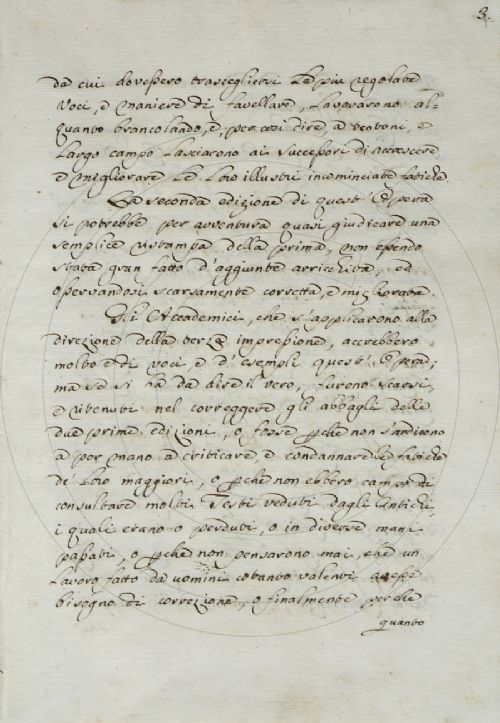 3.
da cui dovessero trascegliersi le più regolate
Voci, e maniere di favellare, lavorarono al=
quanto brancolando, e, per così dire, a tentoni, e
largo campo lasciarono ai successori di accrescere
e migliorare le loro illustri incominciate fatiche
La seconda edizione di quest'Opera
si potrebbe per avventura quasi giudicare una
semplice ristampa della prima, non essendo
stata gran fatto d'aggiunte arricchita, ed
osservandosi scarsamente corretta, e migliorata.
Gli Accademici, che s'applicarono alla
direzione della terza impressione, accrebbero
molto e di voci, e d'esempli quest'Opera;
ma se si ha da dire il vero, furono scarsi,
e ritenuti nel correggere gli abbagli delle
due prime edizioni, o fosse pchè non s'ardirono
a por mano a criticare e condannare le fatiche
de' loro maggiori, o pchè non ebbero campo di
consultare molti Testi veduti dagli Antichi
i quali erano o perduti, o in diverse mani
passati, o pchè non pensarono mai, che un
lavoro fatto da uomini cotanto valenti avesse
bisogno di correzione, o finalmente perchè
quanto